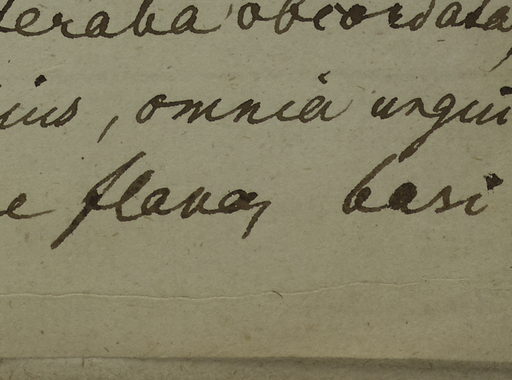 teraba obcordata,
ius, omnia ungui
e flava, basi